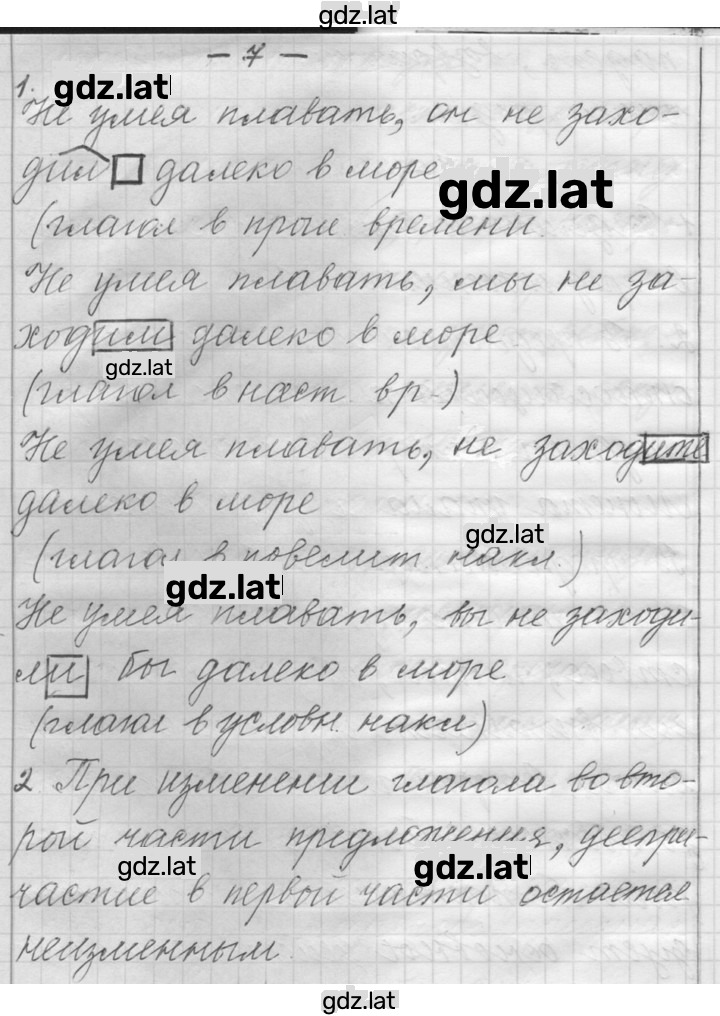 gdz.lat
— 7 —
1. gdz.lat
Не умея плавать, он не захо-
дил далеко в море
gdz.lat
(глагол в прош времени.
Не умея плавать, мы не за-
ходим далеко в море
gdz.lat
(глагол в наст. вр.)
Не умея плавать, не заходите
далеко в море
gdz.lat
(глагол в повелит. накл.)
gdz.lat
Не умея плавать, вы не заходи-
ли бы далеко в море
(глагол в условн. накл)
2 При изменении глагола во вто-
рой части предложения, деепри-
gdz.lat gdz.lat
частие в первой части остается
неизменным.
gdz.lat